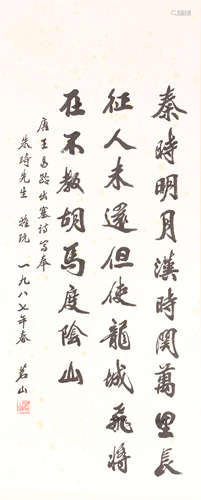 秦時明月漢時関萬里長
征人未還但使龍城飛將
在不教胡馬度陰山
唐王昌齡出塞詩寫奉
朱琦先生 雅玩 一九八七年春 茗山